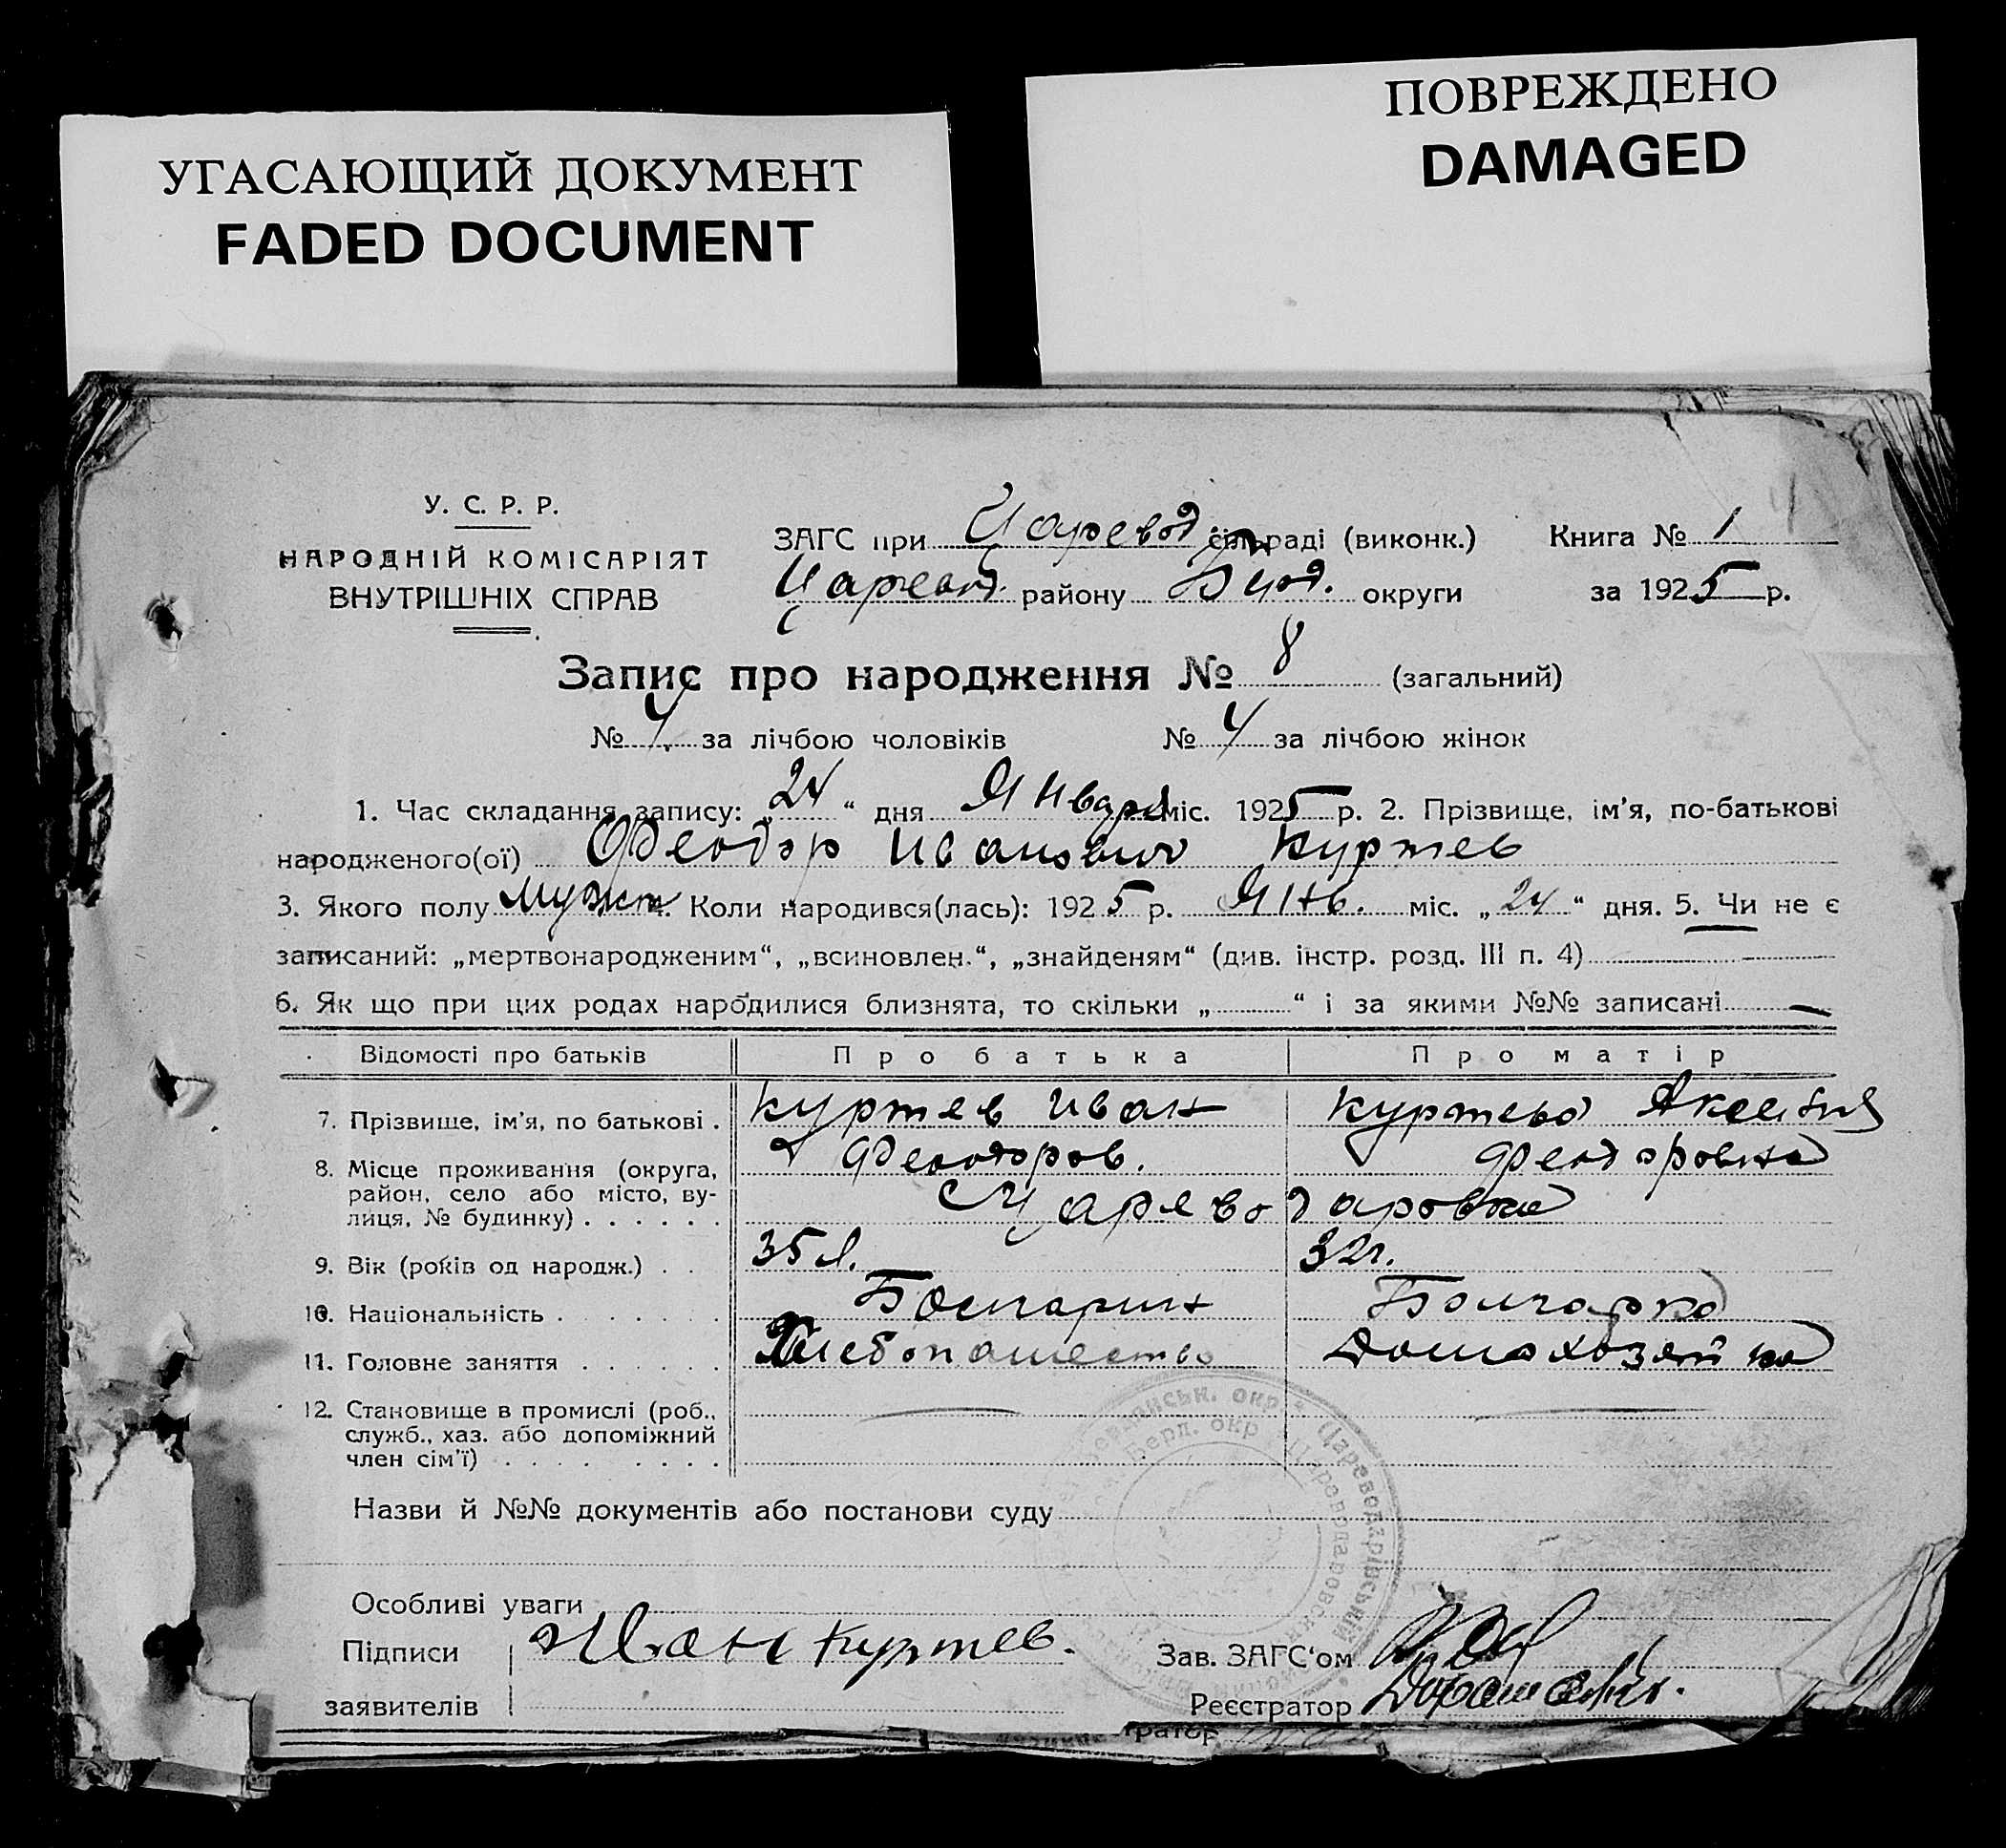 УГАСАЮЩИЙ ДОКУМЕНТ
FADED DOCUMENT
ПОВРЕЖДЕНО
DAMAGED
У. С. Р. Р.
НАРОДНІЙ КОМІСАРІЯТ
ВНУТРІШНІХ СПРАВ
ЗАГС при Царевод сільраді (виконк.) Книга № 1
Царевод. району округи за 1925 р.
Запис про народження № 8 (загальний)
№ 4 за лічбою чоловіків № 4 за лічбою жінок
1. Час складання запису: „24“ дня Января міс. 1925 р. 2. Прізвище, ім'я, по-батькові
народженого(ої) Феодор Иванович Куртев
3. Якого полу мужск. Коли народився(лась): 1925 р. Янв. міс. „24“ дня. 5. Чи не є
записаний: „мертвонародженим“, „всиновлен.“, „знайденям“ (див. інстр. розд. III п. 4)
6. Як що при цих родах народилися близнята, то скільки „ “ і за якими №№ записані —
Відомості про батьків Про батька Про матір
7. Прізвище, ім'я, по батькові . Куртев Иван Куртева Аксения
Феодоров. Феодоровна
8. Місце проживання (округа, район, село або місто, вулиця, № будинку) . . . . . . Цареводаровка
9. Вік (років од народж.) . . 35 л. 32 г.
10. Національність . . . . . . Болгарин Болгарка
11. Головне заняття . . . . . . Хлебопашество Домахозяйка
12. Становище в промислі (роб., служб., хаз. або допоміжний член сім'ї) . . . . . . . .
Назви й №№ документів або постанови суду
Особливі уваги
Підписи Иван Куртев. Зав. ЗАГС'ом
заявителів Реєстратор
тратор